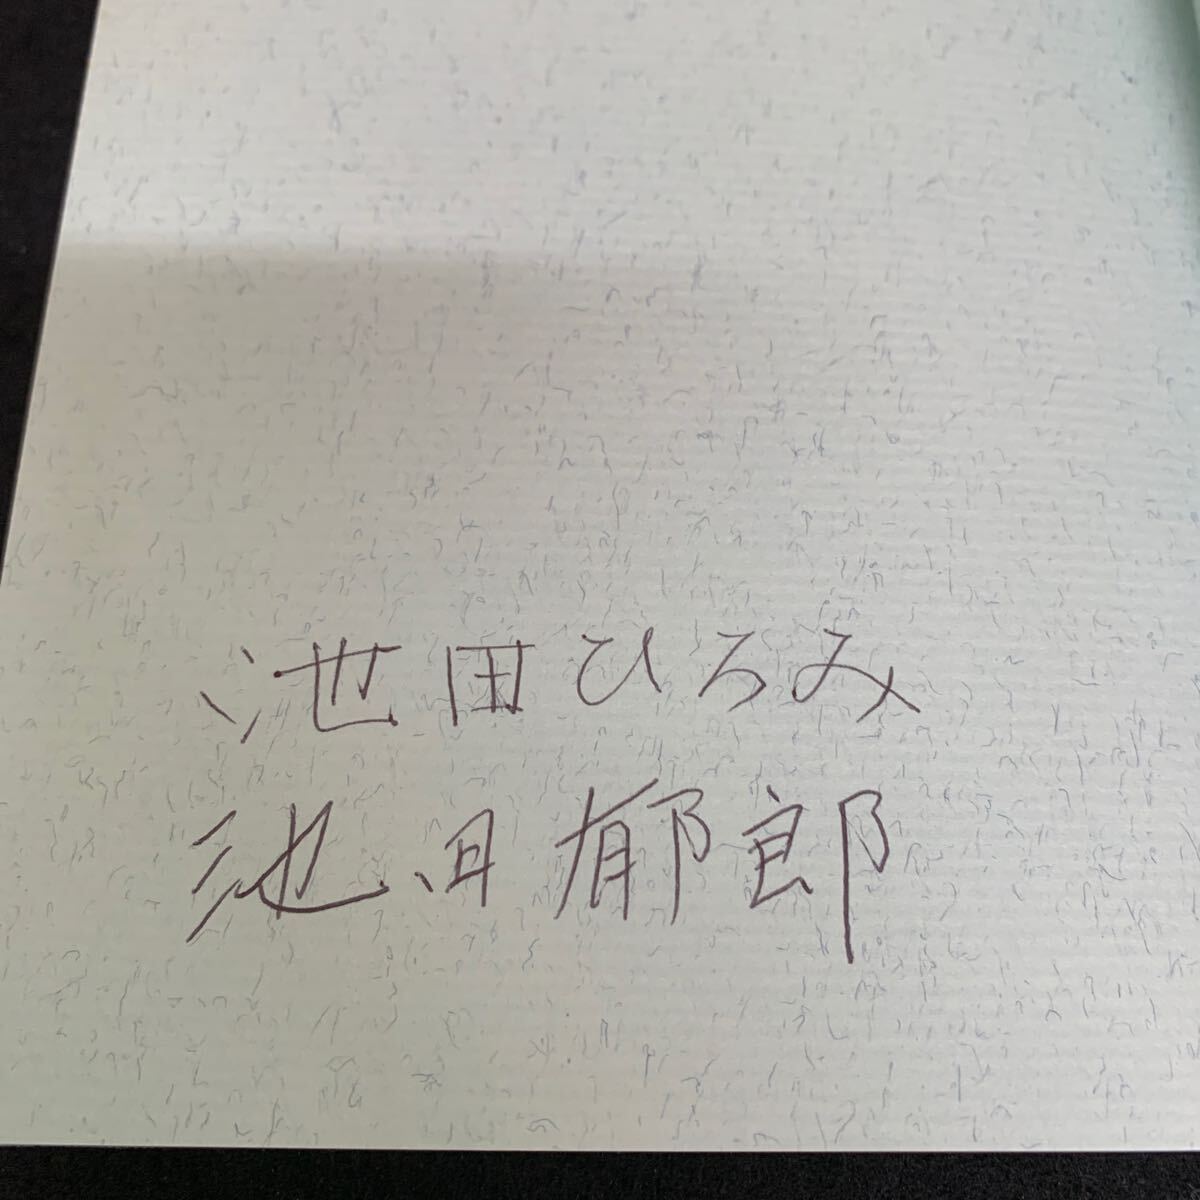 池田ひろみ
池田郁郎